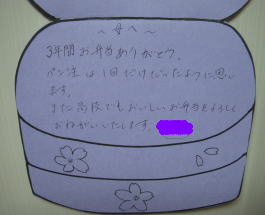 ～母へ～
3年間お弁当ありがとう。
パン注は1回だけだったように思い
ます。
また高校でもおいしいお弁当をよろしく
おねがいいたします。